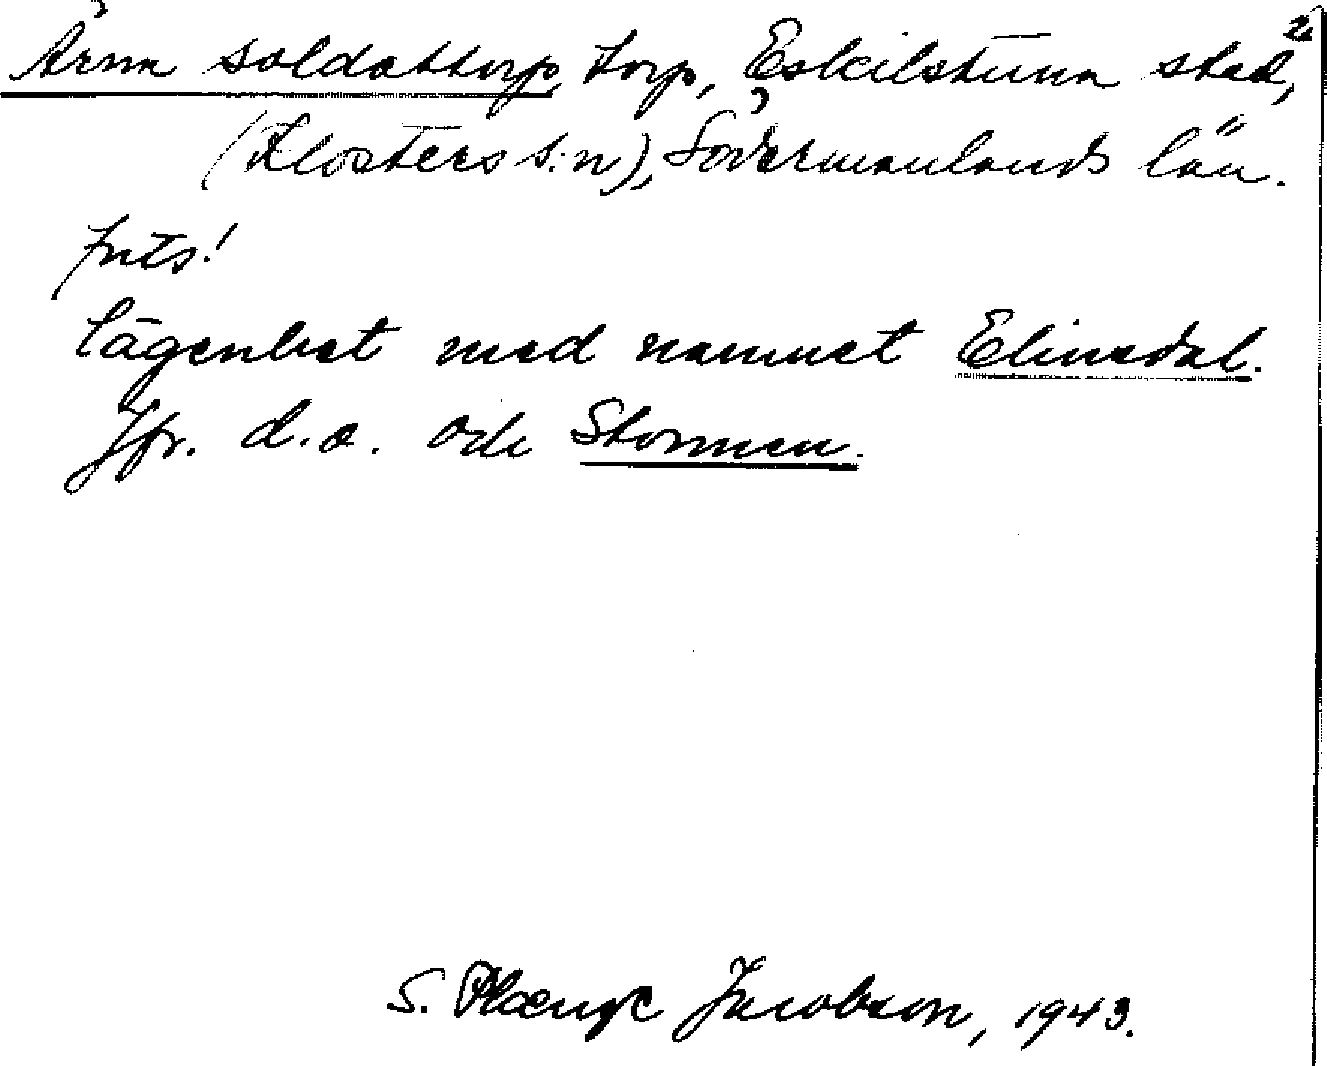 2.
Årna soldattorp, torp, Eskilstuna stad,
(Klosters s:n), Södermanlands län.
forts!
lägenhet med namnet Elinedal.
Jfr. d.o. och Stormen.
S. Plænge Jacobson, 1943.